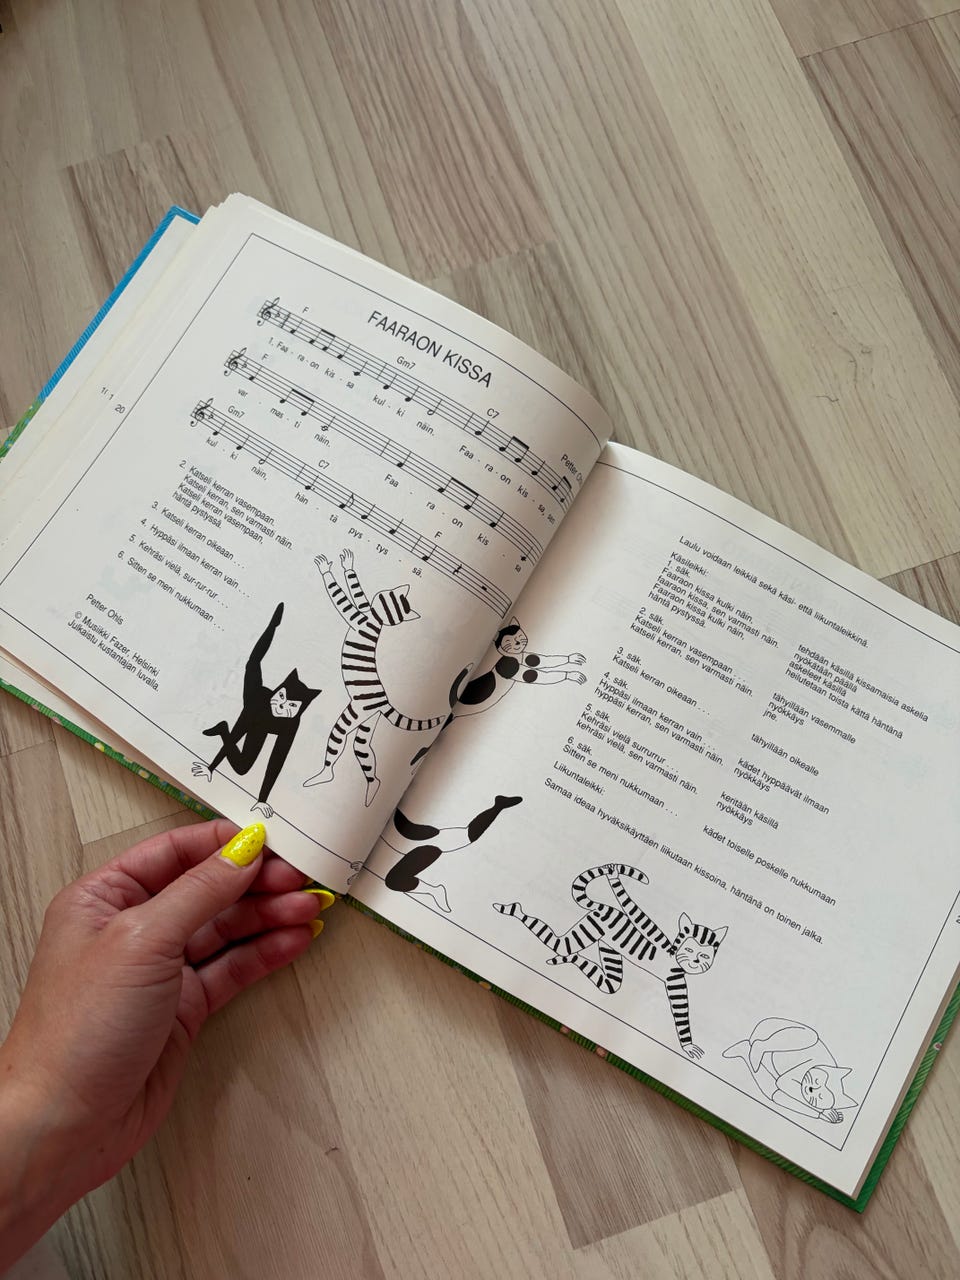 FAARAON KISSA
Petter Oh
F Gm7 C7
1. Faa - ra - on kis - sa kul - ki näin, Faa - ra - on kis - sa, sen
F
var - mas - ti näin. Faa - ra - on kis - sa
Gm7 C7 F
kul - ki näin, hän - tä pys - tys - sä.
2. Katseli kerran vasempaan.
Katseli kerran, sen varmasti näin.
Katseli kerran vasempaan,
häntä pystyssä.
3. Katseli kerran oikeaan . . .
4. Hyppäsi ilmaan kerran vain . . .
5. Kehräsi vielä, sur-rur-rur . . .
6. Sitten se meni nukkumaan . . .
Petter Ohls
© Musiikki Fazer, Helsinki
Julkaistu kustantajan luvalla.
20
Laulu voidaan leikkiä sekä käsi- että liikuntaleikkinä.
Käsileikki:
1. säk.
Faaraon kissa kulki näin, tehdään käsillä kissamaisia askelia
faaraon kissa, sen varmasti näin. nyökätään päällä
Faaraon kissa kulki näin, askeleet käsillä
häntä pystyssä. heilutetaan toista kättä häntänä
2. säk.
Katseli kerran vasempaan . . . tähyillään vasemmalle
katseli kerran, sen varmasti näin. nyökkäys
jne.
3. säk.
Katseli kerran oikeaan . . . tähyillään oikealle
4. säk.
Hyppäsi ilmaan kerran vain, . . . kädet hyppäävät ilmaan
hyppäsi kerran, sen varmasti näin. nyökkäys
5. säk.
Kehräsi vielä surrurrur . . . keritään käsillä
kehräsi vielä, sen varmasti näin. nyökkäys
6. säk.
Sitten se meni nukkumaan . . . kädet toiselle poskelle nukkumaan
Liikuntaleikki:
Samaa ideaa hyväksikäyttäen liikutaan kissoina, häntänä on toinen jalka.